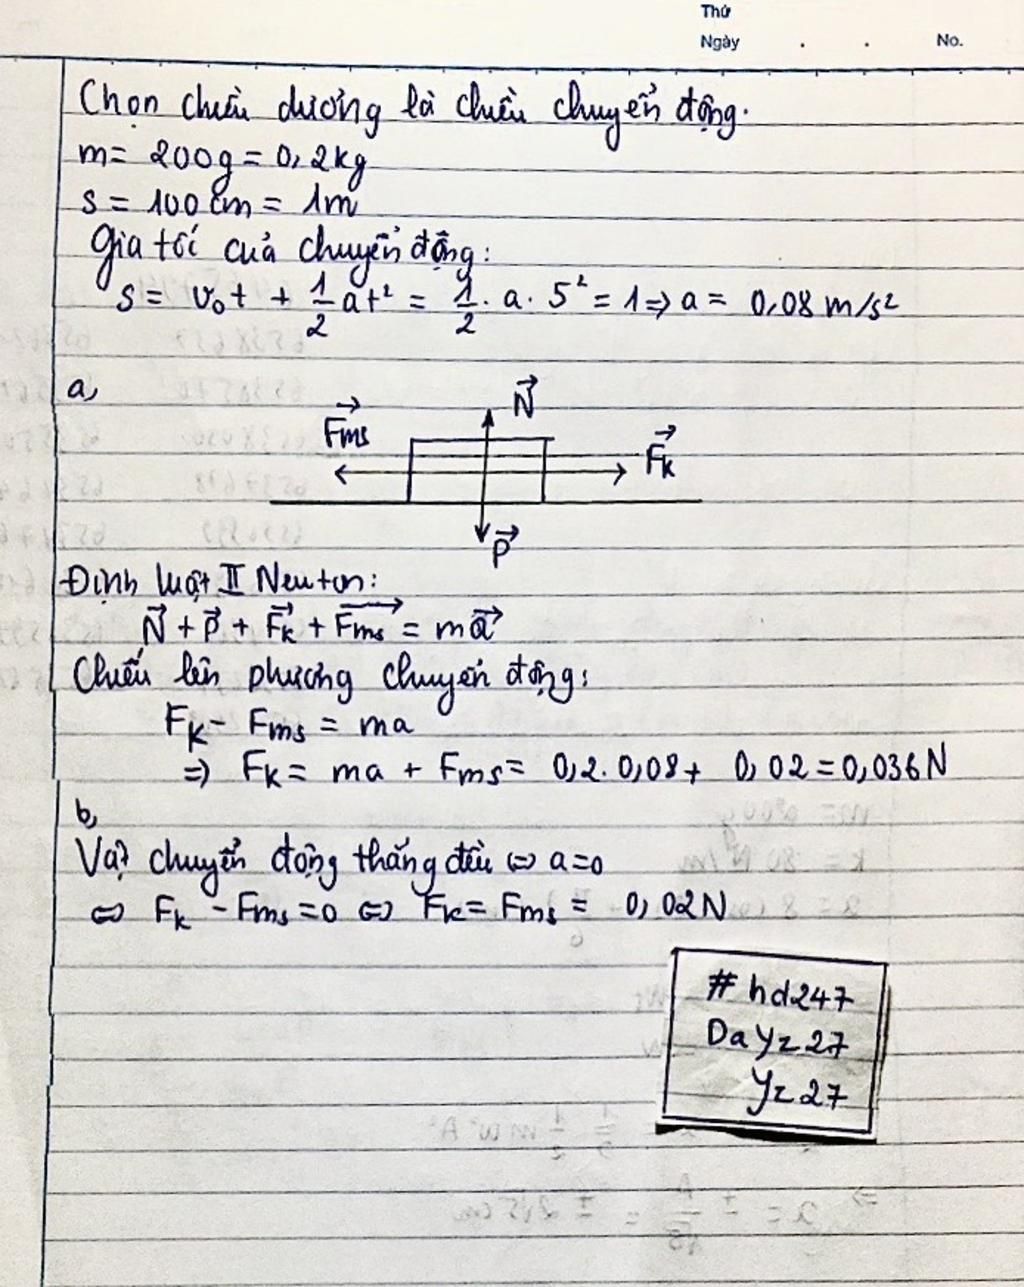 Thứ
Ngày . . No.
Chọn chiều dương là chiều chuyển động.
m = 200g = 0,2kg
s = 100cm = 1m
Gia tốc của chuyển động:
s = v₀t + 1/2 at² = 1/2 . a . 5² = 1 => a = 0,08 m/s²
a,
N⃗
Fms⃗
Fk⃗
P⃗
Định luật II Neuton:
N⃗ + P⃗ + Fk⃗ + Fms⃗ = ma⃗
Chiếu lên phương chuyển động:
Fk - Fms = ma
=> Fk = ma + Fms = 0,2.0,08 + 0,02 = 0,036N
b,
Vật chuyển động thẳng đều <=> a=0
<=> Fk - Fms = 0 <=> Fk = Fms = 0,02N
# hd247
DaYz27
Yz27